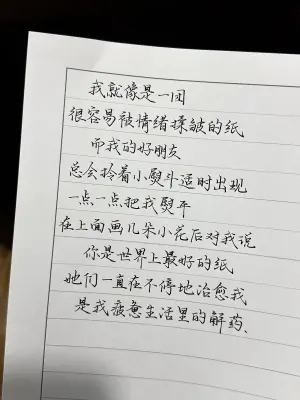 我就像是一团
很容易被情绪揉皱的纸
而我的好朋友
总会拎着小熨斗适时出现
一点一点把我熨平
在上面画几朵小花后对我说
你是世界上最好的纸
她们一直在不停地治愈我
是我疲惫生活里的解药、